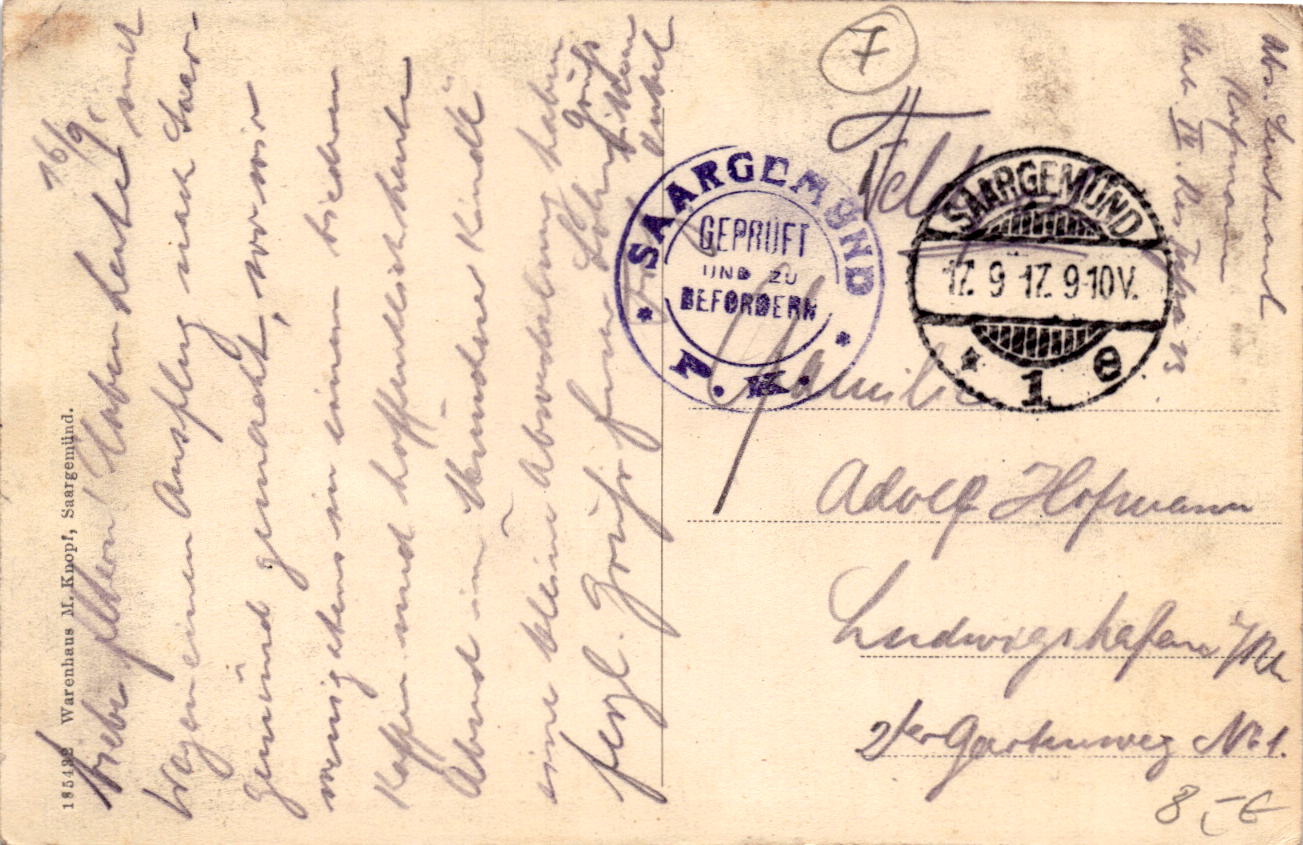 16/9.
Liebe Eltern! Haben heute mit
Wagen einen Ausflug nach Saar-
gemünd gemacht, wo wir
wenigstens in einem
Kaffee und hoffentlich heute
Abend im Kinderl
eine kleine Abwechslung haben
herzl. Grüße
Grüß
Warenhaus M. Knopf, Saargemünd.
7
SAARGEMÜND
GEPRÜFT
UND ZU
BEFÖRDERN
P. K.
SAARGEMÜND
17. 9 17. 9-10V.
* 1 e
Abs. Leutnant
Hofmann
Familie
Adolf Hofmann
Ludwigshafen a/Rh
2ter Gartenweg No 1.
8,- €